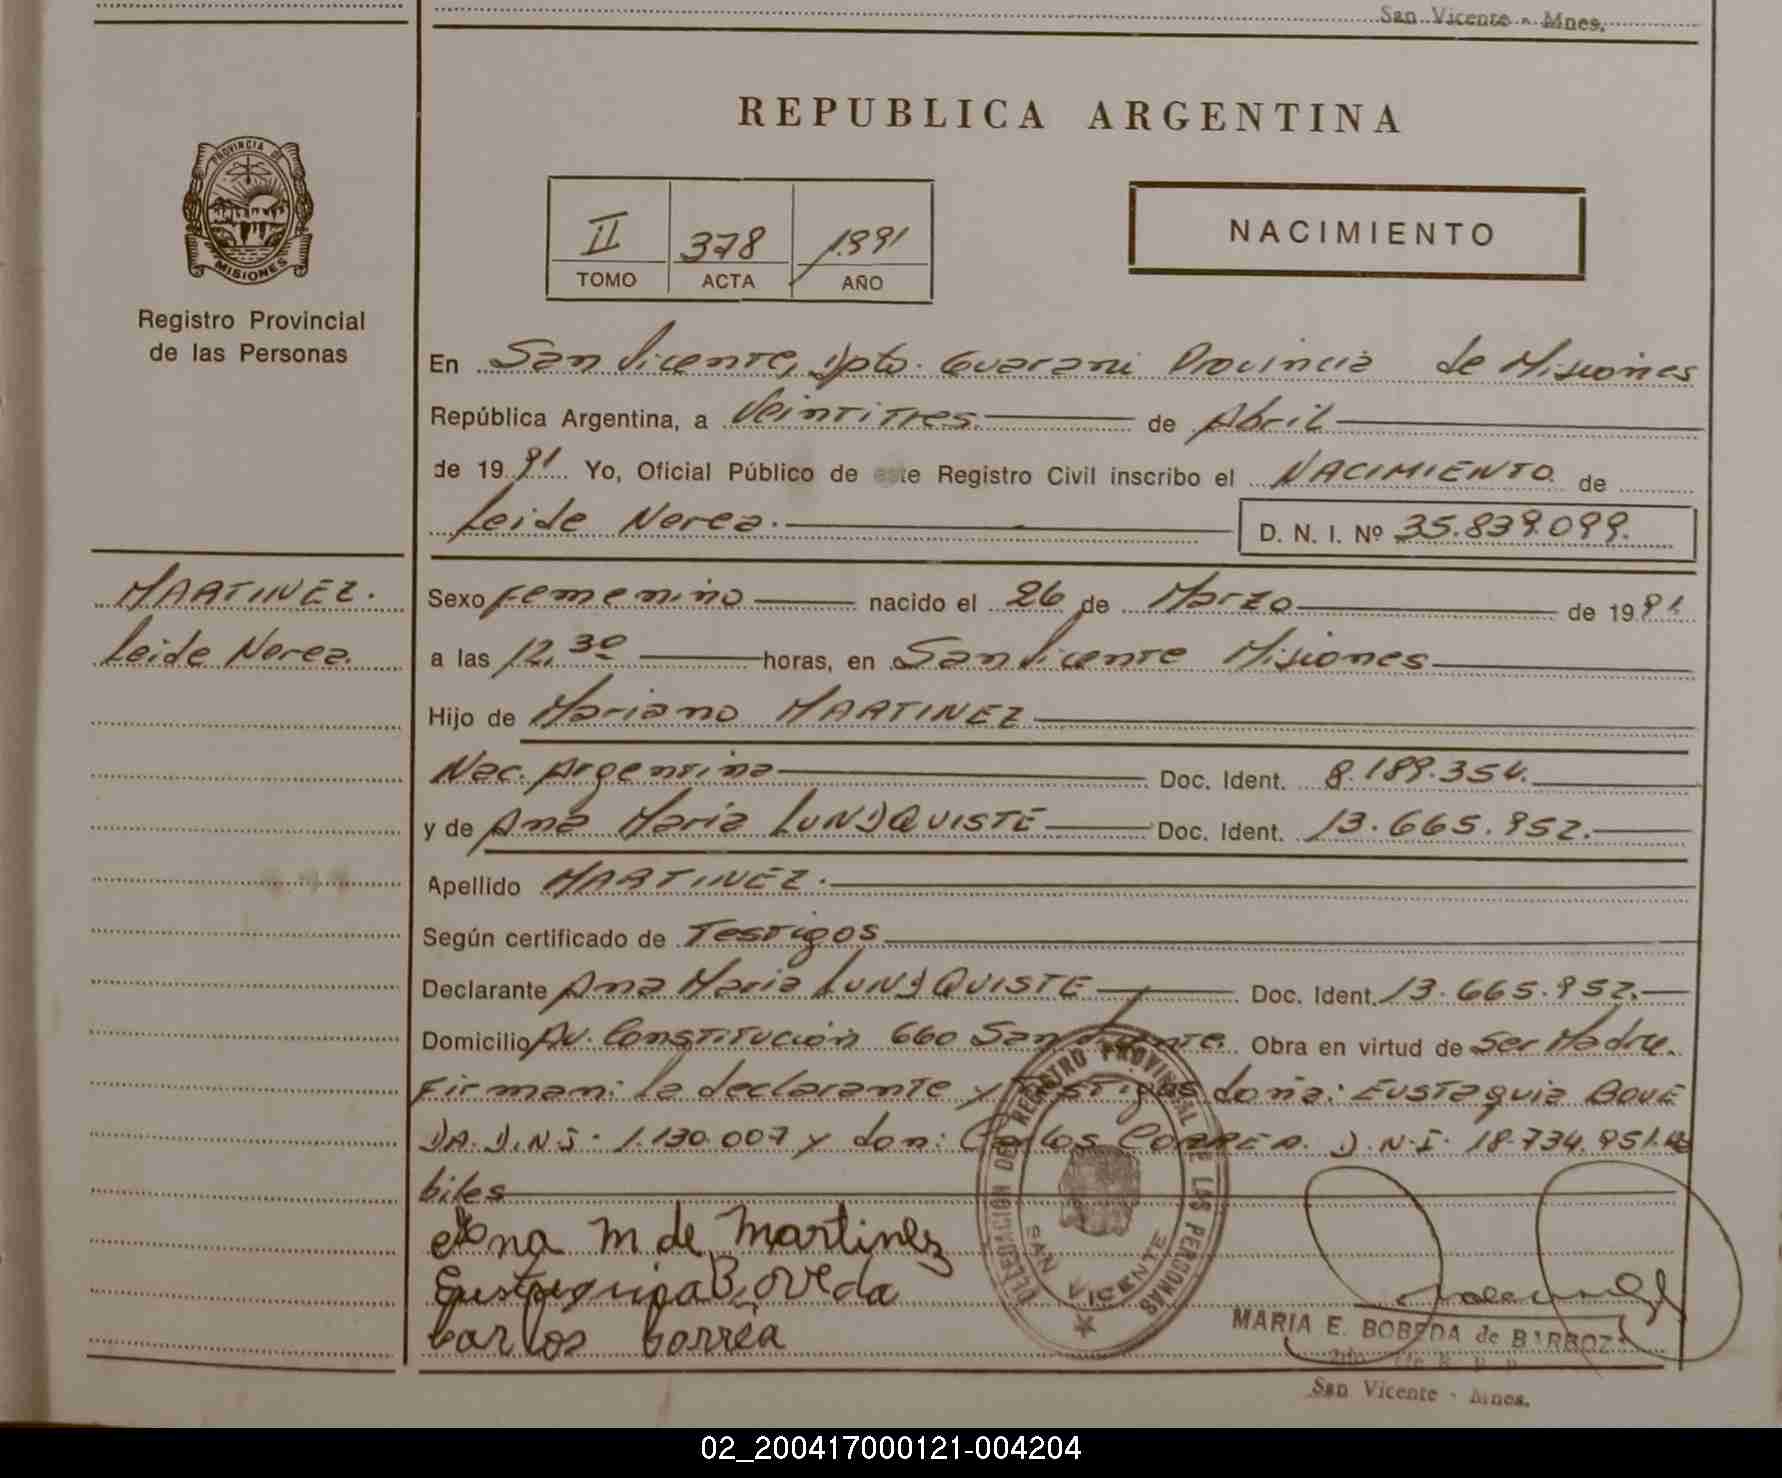 San Vicente - Mnes.
REPUBLICA ARGENTINA
PROVINCIA DE
MISIONES
Registro Provincial
de las Personas
II 378 1991
TOMO ACTA AÑO
NACIMIENTO
En San Vicente, Dpto. Guarani Provincia de Misiones
República Argentina, a Veintitres de Abril
de 1991 Yo, Oficial Público de este Registro Civil inscribo el NACIMIENTO de
Leide Nerea.
D. N. I. Nº 35.839.099.
MARTINEZ.
Leide Nerea.
Sexo femenino nacido el 26 de Marzo de 1991
a las 12,30 horas, en San Vicente Misiones
Hijo de Mariano MARTINEZ
Nac. Argentina Doc. Ident. 8.189.354.
y de Ana Maria LUNDQUISTE Doc. Ident. 13.665.952.
Apellido MARTINEZ.
Según certificado de Testigos
Declarante Ana Maria LUNDQUISTE Doc. Ident. 13.665.952.
Domicilio Av. Constitución 660 San Vicente. Obra en virtud de ser Madre.
Firman: la declarante y Testigos doña: Eustaquia BOVE
DA. D.N.I. 1.130.007 y don: Carlos CORREA. D.N.I. 18.734.951. Há
biles
Ana M de Martinez
Eustaquia Boveda
Carlos Correa
DELEGACION DEL REGISTRO PROVINCIAL DE LAS PERSONAS
SAN VICENTE
MARIA E. BOBEDA de BARROZO
San Vicente - Mnes.
02_200417000121-004204